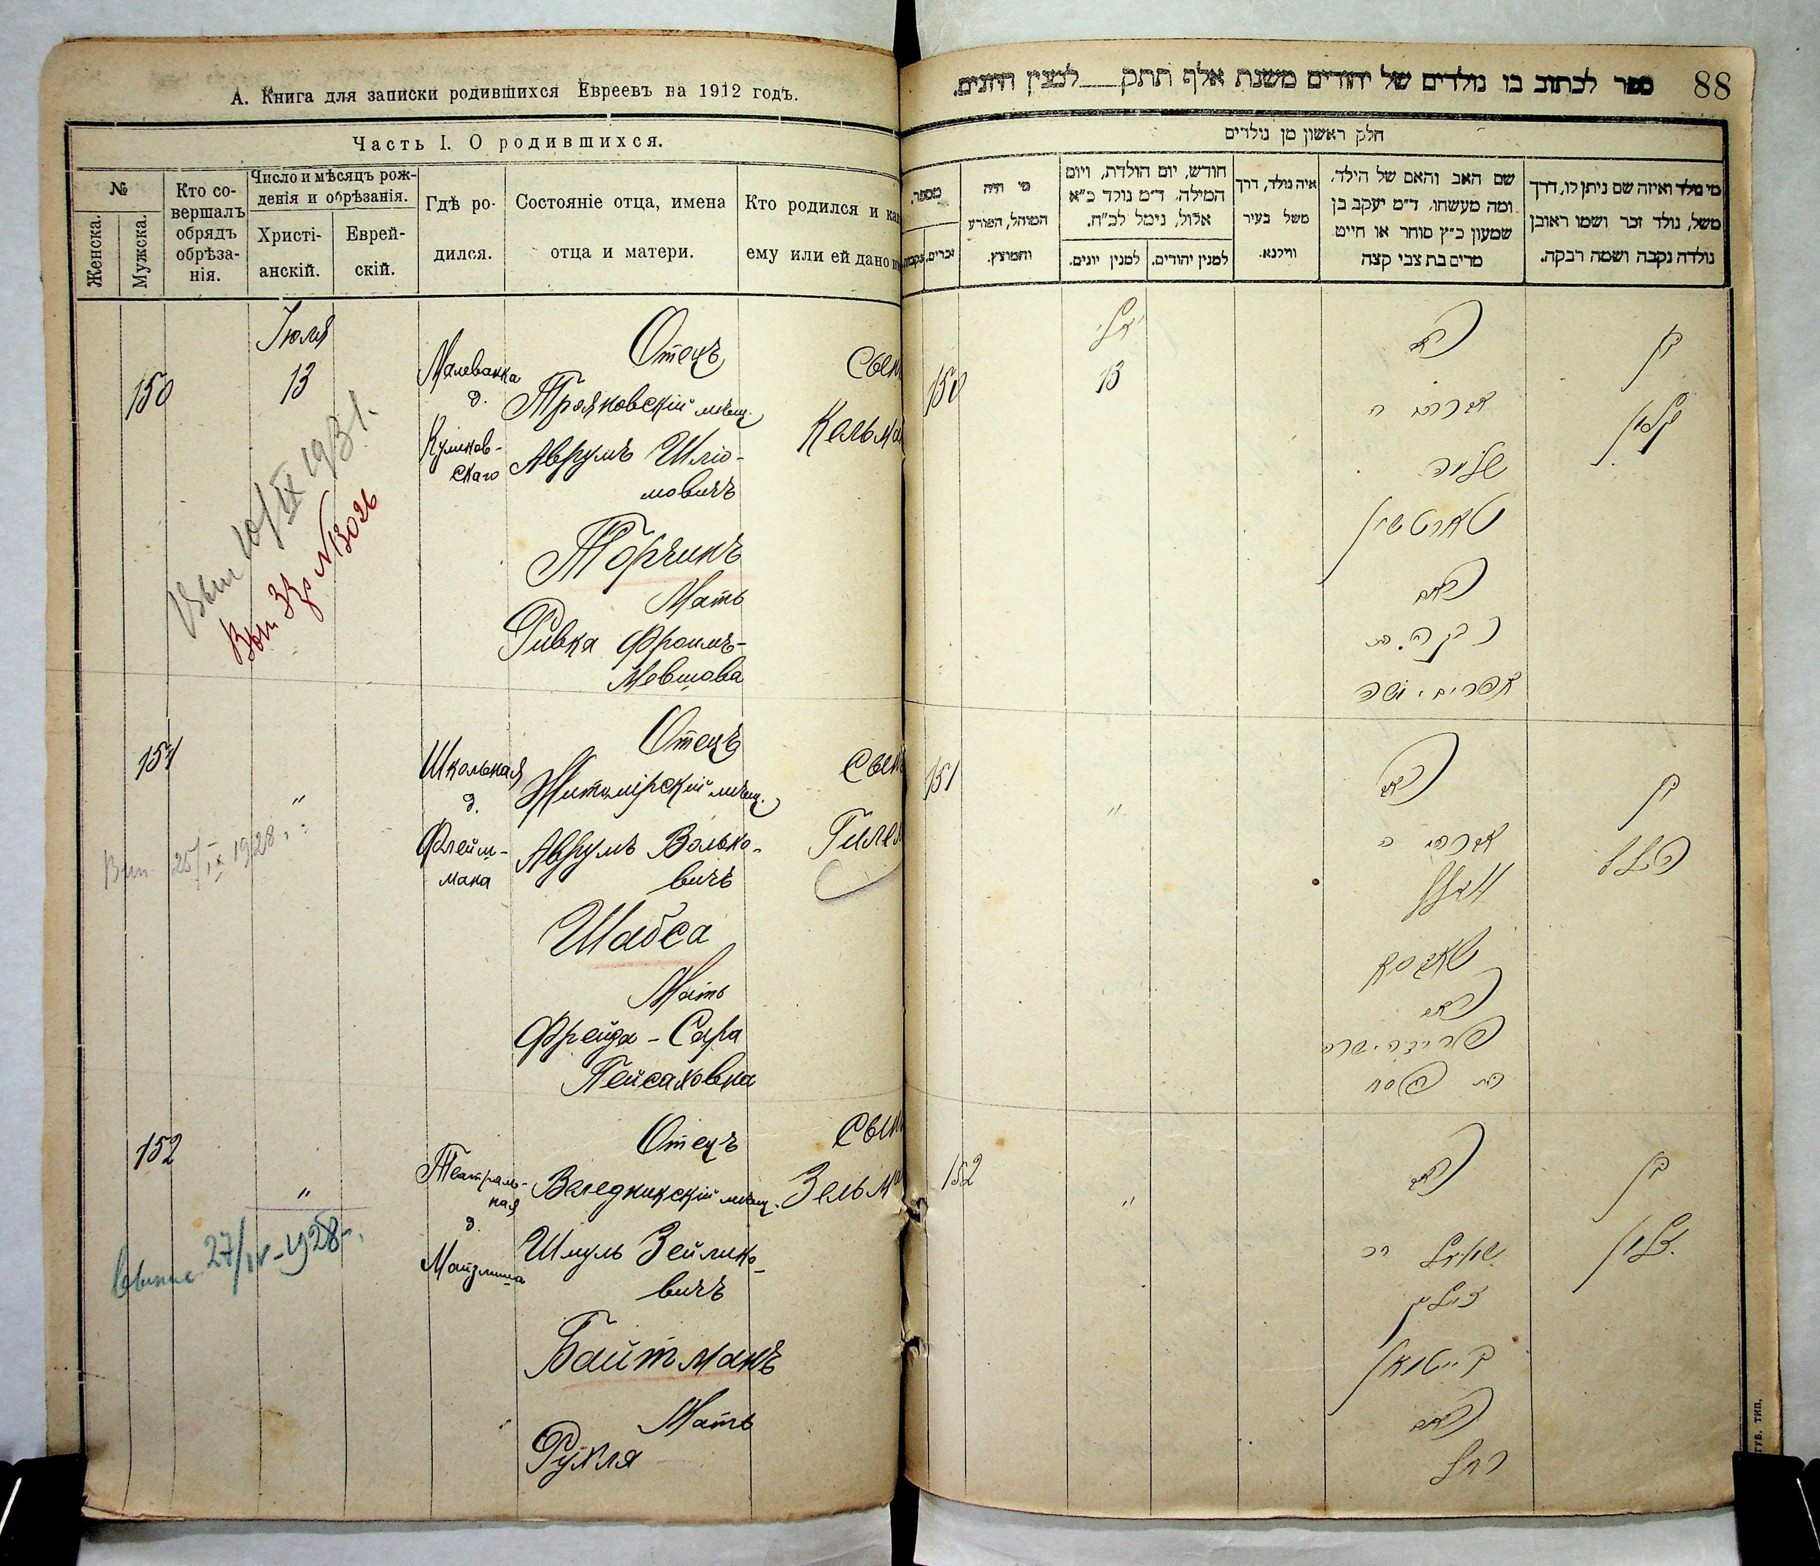 А. Книга для записки родившихся Евреевъ на 1912 годъ.
Часть I. О родившихся.
№
Женска.
Мужска.
Кто со-
вершалъ
обрядъ
обрѣза-
нія.
Число и мѣсяцъ рож-
денія и обрѣзанія.
Христі-
анскій.
Еврей-
скій.
Гдѣ ро-
дился.
Состояніе отца, имена
отца и матери.
Кто родился и как
ему или ей дано
150
Іюля
13
Малеванка
д.
Кулков-
скаго
Отецъ
Трояновскій мѣщ.
Аврумъ Шлио-
мовичъ
Торчинъ
Мать
Ривка Фроимъ-
Мовшова
Сынъ
Кельма
Вып 10/IX 1931.
151
"
Школьная
д.
Флейш-
мана
Отецъ
Житомірскій мѣщ.
Аврумъ Волько-
вичъ
Шабса
Мать
Фрейда-Сара
Пейсаховна
Сынъ
Гилел
Вып. 25/IX 1928 г.
152
"
Театраль-
ная
д.
Отецъ
Веледникскій мѣщ.
Шмуль Зейлико-
вичъ
Байтманъ
Мать
Рухля
Сынъ
Зельма
Выпис. 27/IV-1928 г.
88
ספר לכתוב בו נולדים של יהודים משנת אלף תתק למנין היונים.
חלק ראשון מן נולדים
מי נולד ואיזה שם ניתן לו, דרך
משל, נולד זכר ושמו ראובן
נולדה נקבה ושמה רבקה.
שם האב והאם של הילד,
ומה מעשהו. ד״מ יעקב בן
שמעון כ״ץ סוחר או חייט
מרים בת צבי קצה
איה נולד, דרך
משל בעיר
ווילנא.
חודש, יום הולדת, ויום
המילה, ד״מ נולד כ״א
אלול, נימל לכ״ח.
למנין יהודים.
למנין יונים.
מי היה
המוהל, הפורע
והמוצץ.
מספר,
זכרים,
נקבות
בן
קלמן
האב
אברהם ב
שלמה
טארטשין
האם
רבקה בת
אפרים משה
יולי
13
150
בן
הלל
האב
אברהם ב
וואלף
שאבסא
האם
פריידה שרה
בת פסח
"
151
בן
זלמן
האב
שמואל ב
זעליק
בייטמאן
האם
רחל
"
152